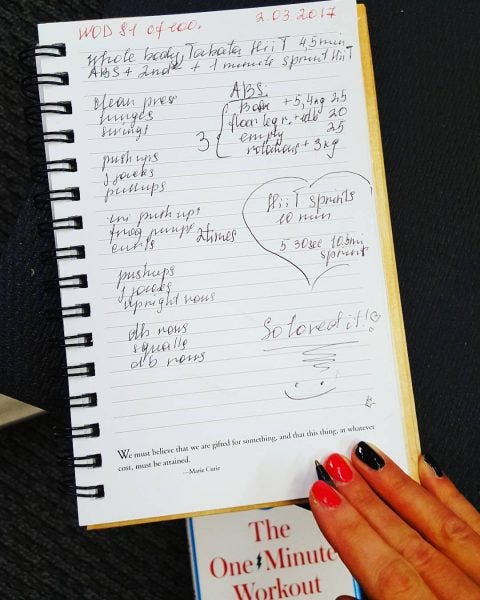 WOD 81 of 100.
2.03 2017
Whole body, Tabata HiiT 45 min
ABS + 2nd + 1 minute sprint HiiT
Clean press
lunges
swings
push ups
j jacks
pullups
push ups
frog jumps
curls
2times
pushups
j jacks
upright rows
db rows
squats
db rows
ABS:
3
+ 5,4kg 25
floor leg r. + 20
empty 25
rotations + 3kg
HiiT sprints
10 min
5 30sec 10.5mi
sprints
So loved it!
We must believe that we are gifted for something, and that this thing, at whatever
cost, must be attained.
—Marie Curie
The
One Minute
Workout